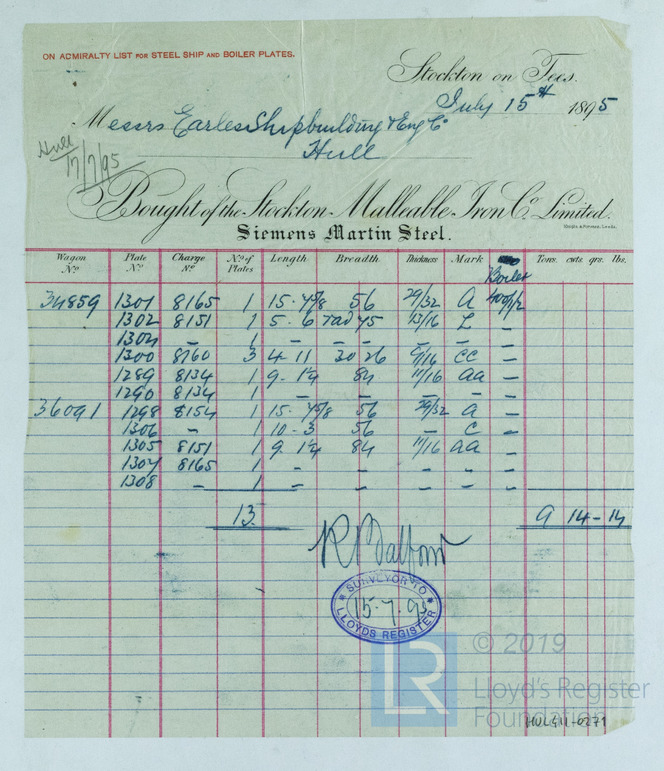 ON ADMIRALTY LIST FOR STEEL SHIP AND BOILER PLATES.
Stockton on Tees.
July 15th 1895
Messrs Earles Shipbuilding & Eng Co
Hull
Hull
17/7/95
Bought of the Stockton Malleable Iron Co. Limited.
Siemens Martin Steel.
Wagon No. Plate No. Charge No. No. of Plates Length Breadth Thickness Mark Tons. cwts. qrs. lbs.
Boiler
34859 1301 8165 1 15. 4 5/8 56 29/32 A 400/2
1302 8151 1 5. 6 rad 45 13/16 L –
1304 – 1 – – – – –
1300 8160 3 4 11 30 26 9/16 CC –
1289 8134 1 9. 1 1/4 84 11/16 aa –
1290 8134 1 – – – – –
36091 1298 8154 1 15. 4 5/8 56 29/32 A –
1306 – 1 10. 3 56 – C –
1305 8151 1 9. 1 1/4 84 11/16 aa –
1307 8165 1 – – – – –
1308 – 1 – – – – –
13 9 14 – 14
R Balfour
SURVEYOR TO
15.7.95
LLOYDS REGISTER
LR
© 2019
Lloyd's Register
Foundation
HUL911-0271